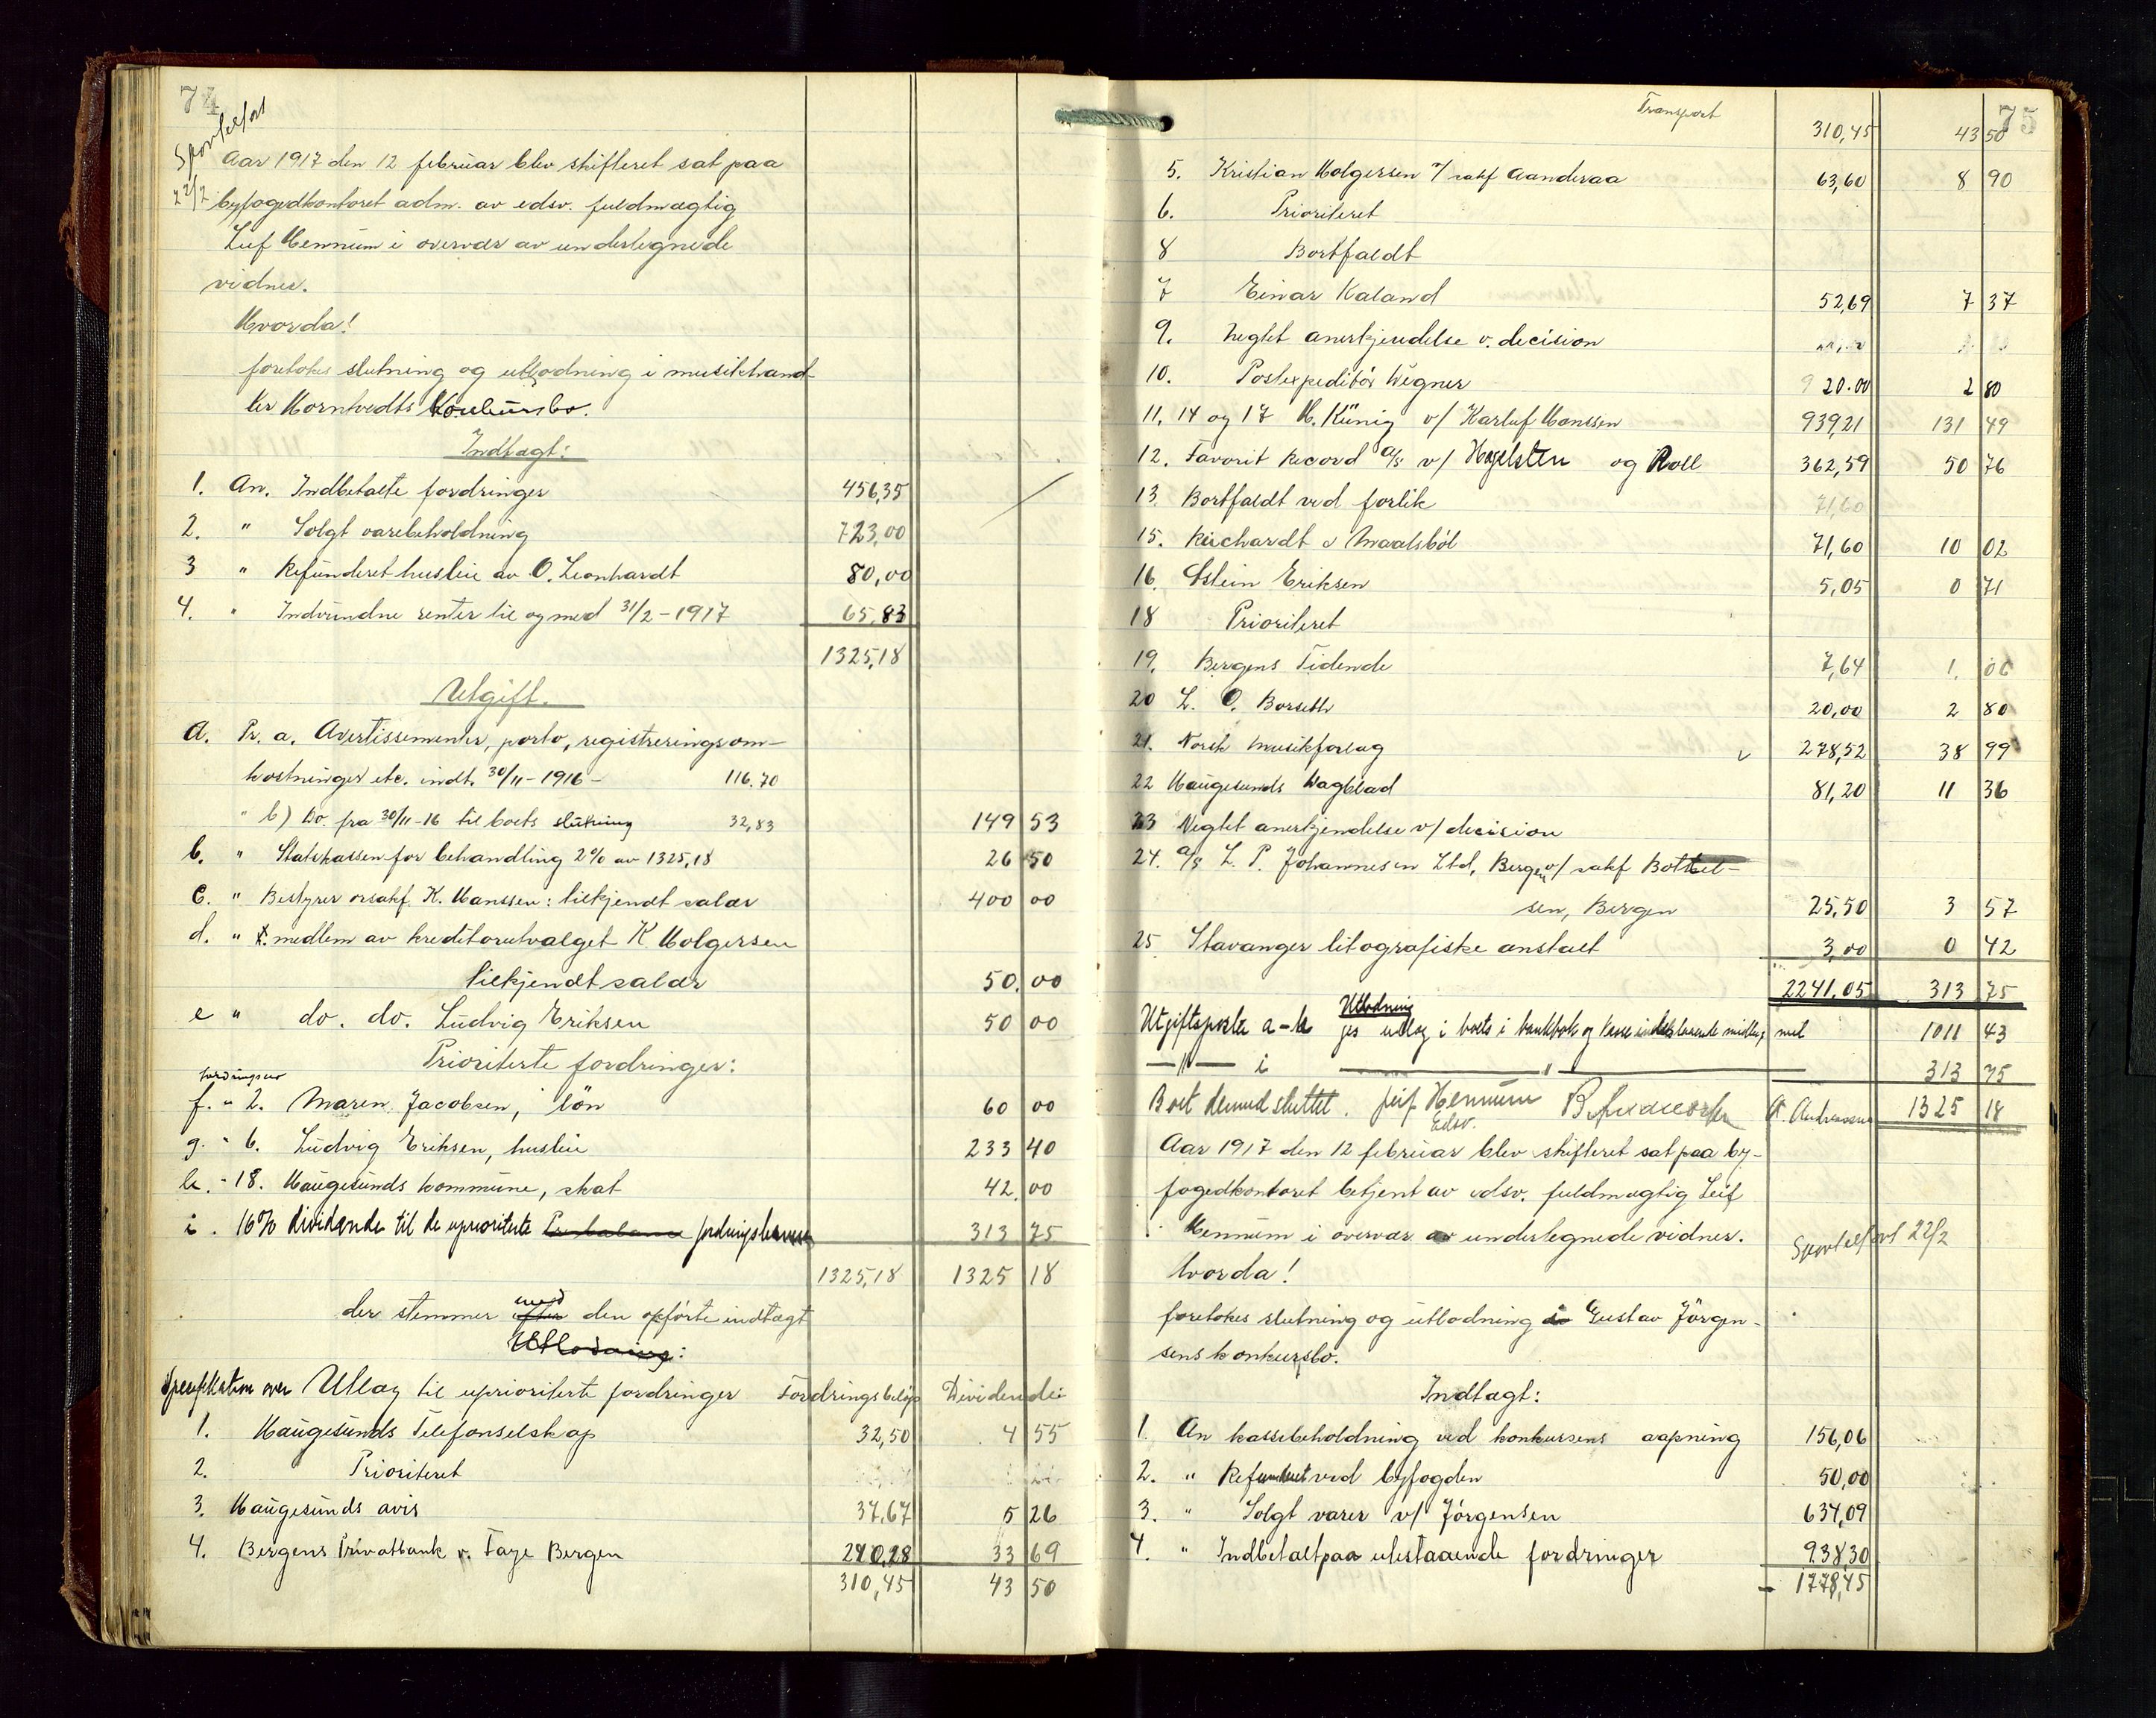 74
Sportelført
22/2
Aar 1917 den 12 februar blev skifteret sat paa
byfogedkontoret adm. av edsv. fuldmægtig
Leif Hennum i overvær av undertegnede
vidner.
Hvorda!
foretokes slutning og utlodning i musikhand-
ler Horntvedts Konkursbo.
Indtægt:
1. An. Indbetalte fordringer 456,35
2. " Solgt varebeholdning 723,00
3 " Refunderet husleie av O. Leonhardt 80,00
4. " Indvundne renter til og med 31/2-1917 65,83
1325,18
Utgift.
a. Pr. a. Avertissementer, porto, registreringsom-
kostninger etc. indt. 30/11-1916- 116.70
" b) Do. fra 30/11-16 til boets slutning 32,83 149 53
b. " Statskassen for behandling 2% av 1325,18 26 50
c. " Bestyrer orsakf. K. Hanssen: tilkjendt salær 400 00
d. " medlem av kreditorutvalget K Holgersen
tilkjendt salær 50.00
e " do. do. Ludvig Eriksen 50 00
Prioriterte fordringer:
fordringsnr
f. " 2. Maren Jacobsen, løn 60 00
g. " 6. Ludvig Eriksen, husleie 233 40
h. " 18. Haugesunds kommune, skat 42.00
i. 16% dividende til de uprioriterte Pr balance fordringshavere 313 75
1325,18 1325 18
med
der stemmer efter den opførte indtægt
Utlodning:
Specifikation over Utlæg til uprioriterte fordringer Fordringsbeløp Dividende
1. Haugesunds Telefonselskap 32,50 4 55
2. Prioriteret
3. Haugesunds avis 37,67 5 26
4. Bergens Privatbank v. Faye Bergen 240,28 33 69
310,45 43 50
75
Transport 310,45 43 50
5. Kristian Holgersen v/ sakf Aanderaa 63,60 8 90
6. Prioriteret
8 Bortfaldt
7 Einar Kaland 52,69 7 37
9. Neglet anerkjendelse v. decision
10. Postexpeditør Wegner 20.00 2 80
11, 14 og 17 H. Künig v/ Karluf Hanssen 939,21 131 49
12. Favorit Record A/S v/ Hagelsten og Roll 362,59 50 76
13. Bortfaldt ved forlik 71,60
15. Reichardt & Maalsbøl 71,60 10 02
16. Østein Eriksen 5,05 0 71
18 Prioriteret
19. Bergens Tidende 7,64 1. 06
20 L. O. Borseth 20,00 2 80
21. Norsk musikforlag 278,52 38 99
22 Haugesunds Dagblad 81,20 11 36
23 Neglet anerkjendelse v/ decision
24. A/S L. P. Johannesen Ltd, Bergen v/ sakf Bottel-
sen, Bergen 25,50 3 57
25. Stavanger litografiske anstalt 3,00 0 42
2241,05 313 75
Utlodning
Utgiftsposter a-h ges utlæg i boets i bankbok og kasse indestaaende midler, med 1011 43
—"— i —"— 313 75
Boet dermed sluttet. Leif Hennum A. Andreassen 1325 18
Edsv.
Aar 1917 den 12 februar blev skifteret sat paa by-
fogedkontoret betjent av edsv. fuldmægtig Leif
Hennum i overvær av undertegnede vidner.
Sportelført 22/2
Hvorda!
foretokes slutning og utlodning i Gustav Jørgen-
sens konkursbo.
Indtægt:
1. An kassebeholdning ved konkursens aapning 156,06
2. " Refunderet ved byfogden 50,00
3. " Solgt varer v/ Jørgensen 634,09
4. " Indbetalt paa utestaaende fordringer 938,30
1778,45